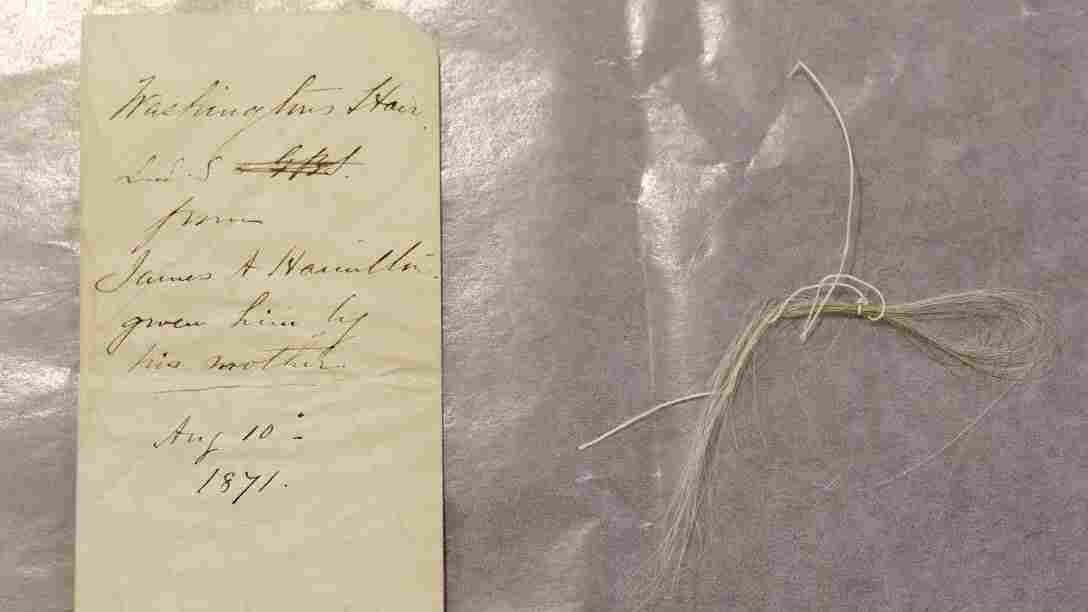 Washingtons Hair,
G B S.
from
James A Hamilton.
given him by
his mother.
Aug 10
1871.